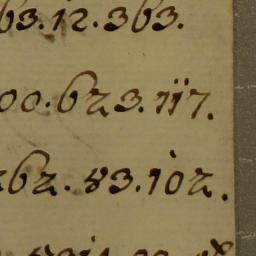 63.12.363.
00.623.117.
262.83.102.